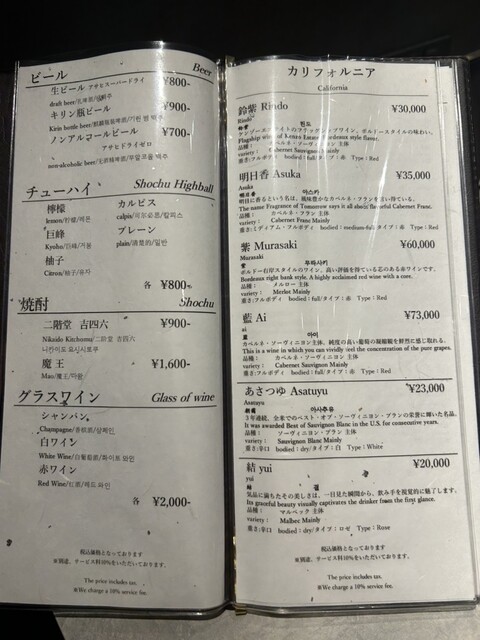 ビール Beer
生ビール アサヒスーパードライ ¥800-
draft beer/扎啤酒/생맥주
キリン瓶ビール ¥900-
Kirin bottle beer/麒麟瓶装啤酒/기린 병 맥주
ノンアルコールビール ¥700-
アサヒドライゼロ
non-alcoholic beer/无酒精啤酒/무알코올 맥주
チューハイ Shochu Highball
檸檬 カルピス
lemon/柠檬/레몬 calpis/可尔必思/칼피스
巨峰 プレーン
Kyoho/巨峰/거봉 plain/清楚的/일반
柚子
Citron/柚子/유자
各 ¥800-
焼酎 Shochu
二階堂 吉四六 ¥900-
Nikaido Kitchomu/二階堂 吉四六
니카이도 요시시로쿠
魔王 ¥1,600-
Mao/魔王/마왕
グラスワイン Glass of wine
シャンパン
Champagne/香槟酒/샴페인
白ワイン
White Wine/白葡萄酒/화이트 와인
赤ワイン
Red Wine/红酒/레드 와인
各 ¥2,000-
税込価格となっております
※別途、サービス料10%をいただいております。
The price includes tax.
※We charge a 10% service fee.
カリフォルニア
California
鈴紫 Rindo ¥30,000
Rindo 린도
鈴紫
Flagship wine of Kenzo Estate Bordeaux style.
variety： Cabernet Sauvignon Mainly
重さ:フルボディ bodied：full/タイプ：赤 Type：Red
明日香 Asuka ¥35,000
Asuka 아스카
明日香
明日に香るという名は、風味豊かなカベルネ・フランを言い得ている。
The name Fragrance of Tomorrow says it all about flavorful Cabernet Franc.
品種： カベルネ・フラン 主体
variety： Cabernet Franc Mainly
重さ:ミディアム・フルボディ bodied：medium-full/タイプ：赤 Type：Red
紫 Murasaki ¥60,000
Murasaki
紫 무라사키
ボルドー右岸スタイルのワイン。高い評価を得ている芯のある赤ワインです。
Bordeaux right bank style. A highly acclaimed red wine with a core.
品種： メルロー 主体
variety： Merlot Mainly
重さ:フルボディ bodied：full/タイプ：赤 Type：Red
藍 Ai ¥73,000
ai
藍 아이
カベルネ・ソーヴィニヨン 主体。純度の高い葡萄の凝縮観を鮮烈に感じ取れる。
This is a wine in which you can vividly feel the concentration of the pure grapes.
品種： カベルネ・ソーヴィニヨン 主体
variety： Cabernet Sauvignon Mainly
重さ:フルボディ bodied：full/タイプ：赤 Type：Red
あさつゆ Asatuyu ¥23,000
Asatuyu
朝露 아사츠유
3年連続、全米でのベスト・オブ・ソーヴィニヨン・ブランの栄誉に輝いた名品。
It was awarded Best of Sauvignon Blanc in the U.S. for consecutive years.
品種： ソーヴィニヨン・ブラン 主体
variety： Sauvignon Blanc Mainly
重さ:辛口 bodied：dry/タイプ：白 Type：White
結 yui ¥20,000
yui
結
気品に満ちたその美しさは、一目見た瞬間から、飲み手を視覚的に魅了します。
Its graceful beauty visually captivates the drinker from the first glance.
品種： マルベック 主体
variety： Malbec Mainly
重さ:辛口 bodied：dry/タイプ：ロゼ Type：Rose
税込価格となっております
※別途、サービス料10%をいただいております。
The price includes tax.
※We charge a 10% service fee.